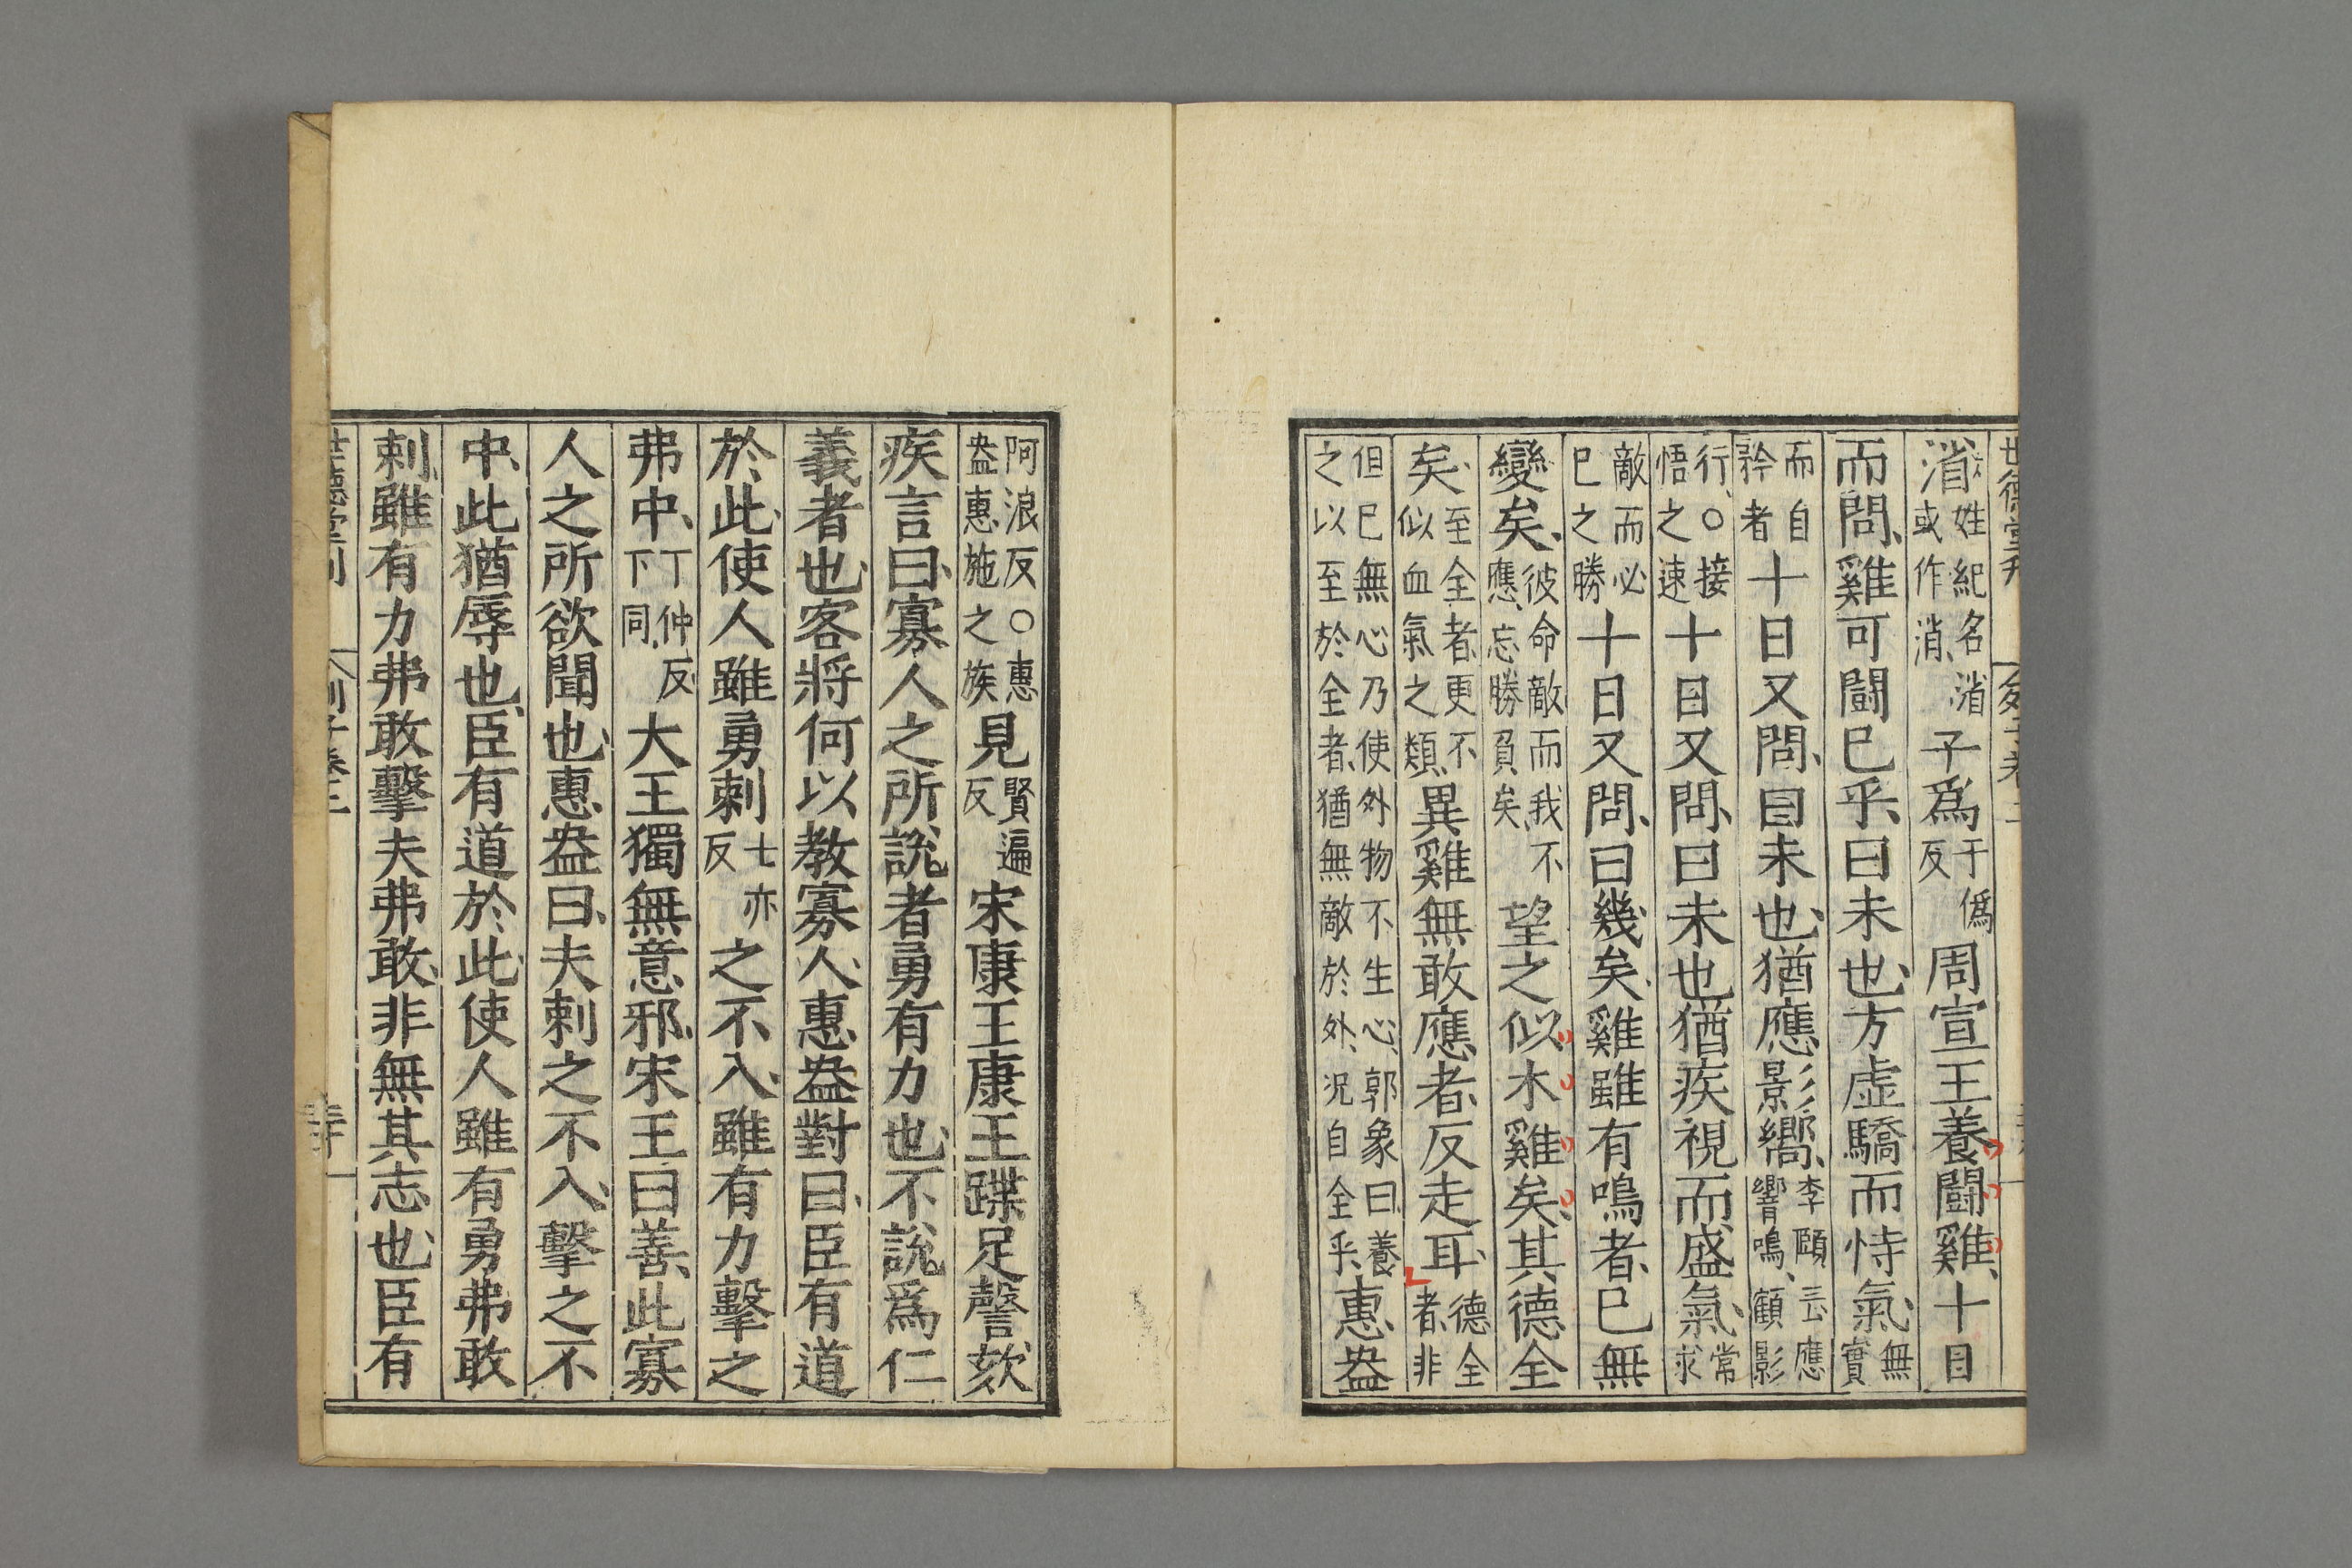 渻姓紀名渻或作消子爲于僞反周宣王養鬬雞十日
而問雞可鬬巳乎曰未也方虛驕而恃氣無實
而自矜者十日又問曰未也猶應影嚮李頤云應響鳴顧影
行○接悟之速十日又問曰未也猶疾視而盛氣常求
敵而必巳之勝十日又問曰幾矣雞雖有鳴者巳無
變矣彼命敵而我不應忘勝負矣望之似木雞矣其德全
矣至全者更不似血氣之類異雞無敢應者反走耳德全者非
但巳無心乃使外物不生心郭象曰養之以至於全者猶無敵於外况自全乎惠盎
阿浪反○惠盎惠施之族見賢遍反宋康王康王蹀足謦欬
疾言曰寡人之所說者勇有力也不說爲仁
義者也客將何以教寡人惠盎對曰臣有道
於此使人雖勇刺七亦反之不入雖有力擊之
弗中丁仲反下同大王獨無意邪宋王曰善此寡
人之所欲聞也惠盎曰夫刺之不入擊之不
中此猶辱也臣有道於此使人雖有勇弗敢
刺雖有力弗敢擊夫弗敢非無其志也臣有